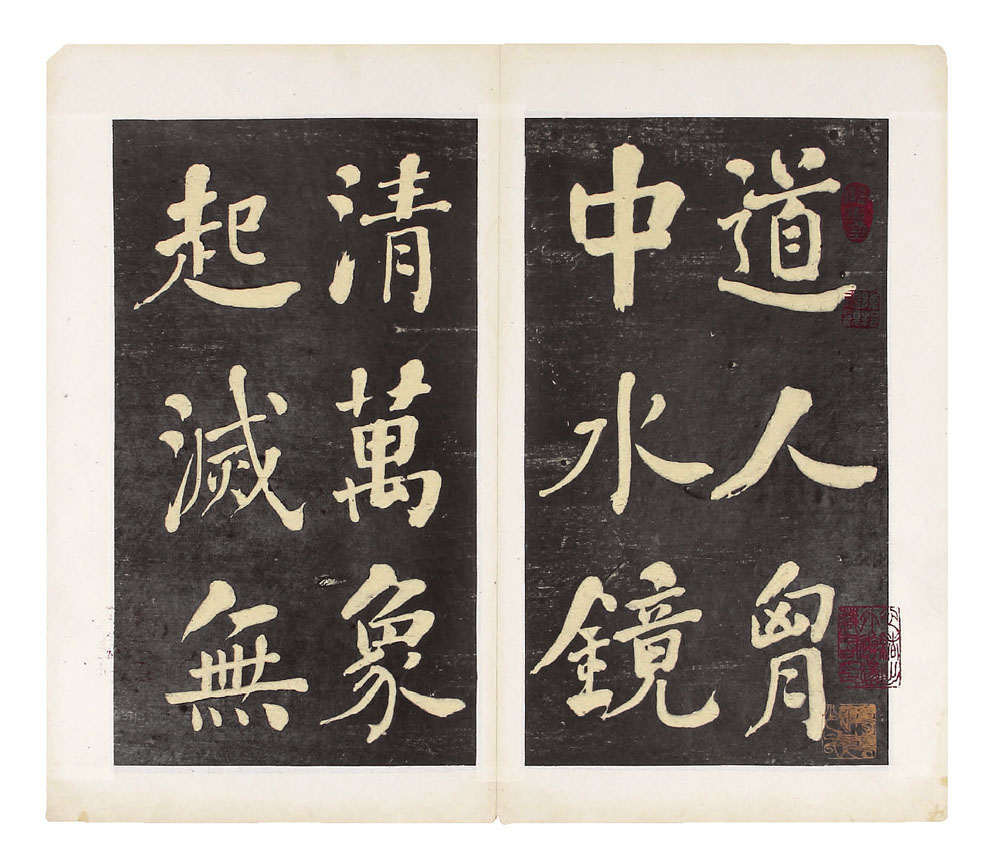 道人胷
中水鏡
清萬象
起滅無